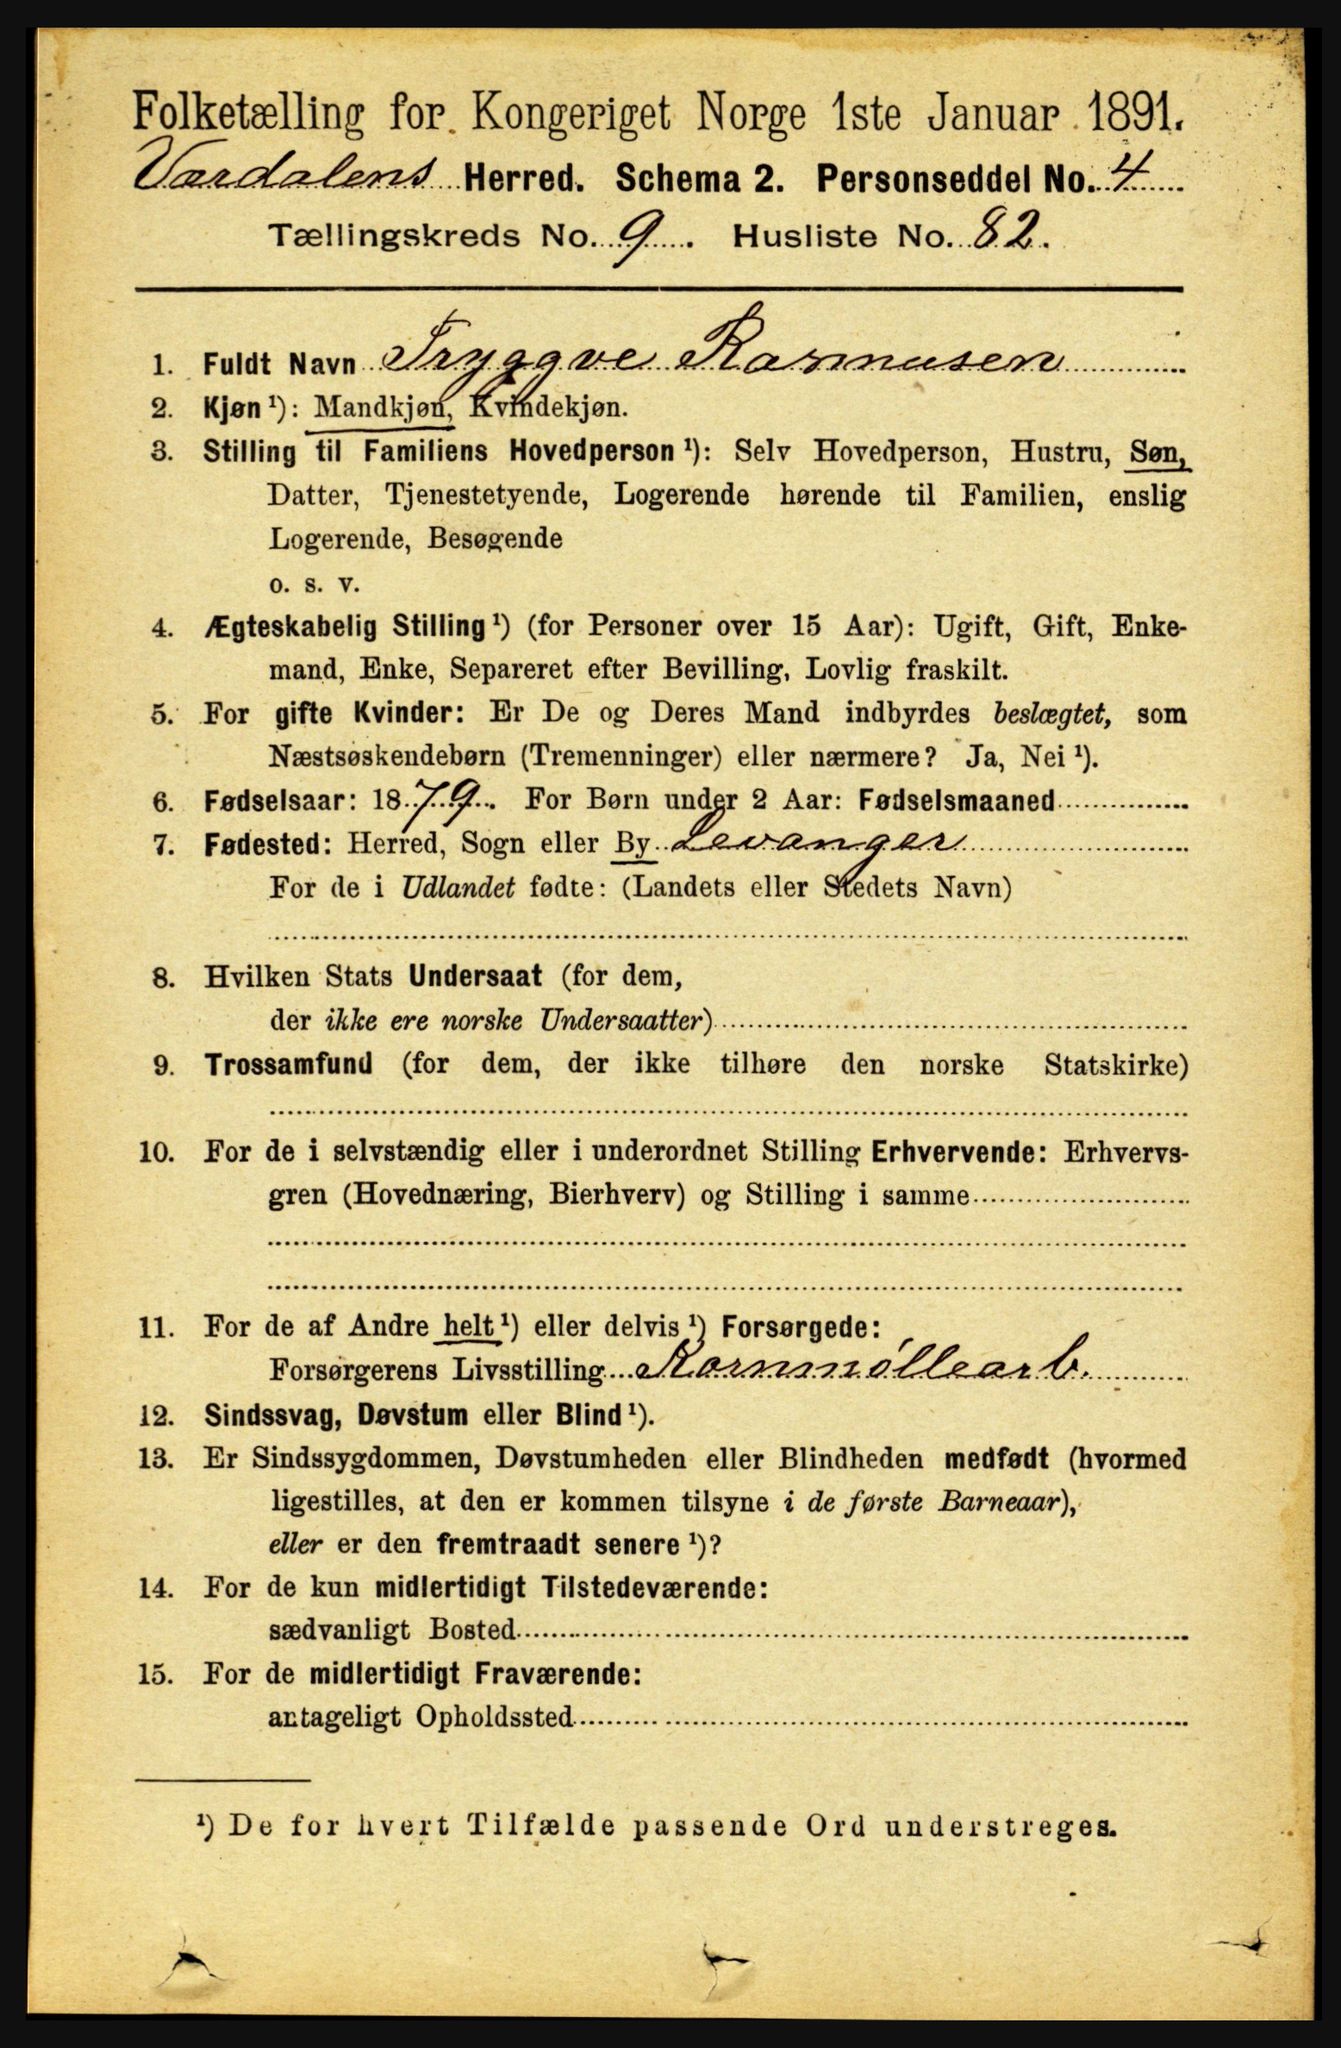 Folketælling for Kongeriget Norge 1ste Januar 1891.
Værdalens Herred. Schema 2. Personseddel No. 4
Tællingskreds No. 9. Husliste No. 82.
1. Fuldt Navn Tryggve Rasmusen
2. Kjøn ¹): Mandkjøn, Kvindekjøn.
3. Stilling til Familiens Hovedperson ¹): Selv Hovedperson, Hustru, Søn,
Datter, Tjenestetyende, Logerende hørende til Familien, enslig
Logerende, Besøgende
o. s. v.
4. Ægteskabelig Stilling ¹) (for Personer over 15 Aar): Ugift, Gift, Enke-
mand, Enke, Separeret efter Bevilling, Lovlig fraskilt.
5. For gifte Kvinder: Er De og Deres Mand indbyrdes beslægtet, som
Næstsøskendebørn (Tremenninger) eller nærmere? Ja, Nei ¹).
6. Fødselsaar: 1879. For Børn under 2 Aar: Fødselsmaaned
7. Fødested: Herred, Sogn eller By Levanger
For de i Udlandet fødte: (Landets eller Stedets Navn)
8. Hvilken Stats Undersaat (for dem,
der ikke ere norske Undersaatter)
9. Trossamfund (for dem, der ikke tilhøre den norske Statskirke)
10. For de i selvstændig eller i underordnet Stilling Erhvervende: Erhvervs-
gren (Hovednæring, Bierhverv) og Stilling i samme
11. For de af Andre helt ¹) eller delvis ¹) Forsørgede:
Forsørgerens Livsstilling Kornmøllearb.
12. Sindssvag, Døvstum eller Blind ¹).
13. Er Sindssygdommen, Døvstumheden eller Blindheden medfødt (hvormed
ligestilles, at den er kommen tilsyne i de første Barneaar),
eller er den fremtraadt senere ¹)?
14. For de kun midlertidigt Tilstedeværende:
sædvanligt Bosted
15. For de midlertidigt Fraværende:
antageligt Opholdssted
¹) De for hvert Tilfælde passende Ord understreges.